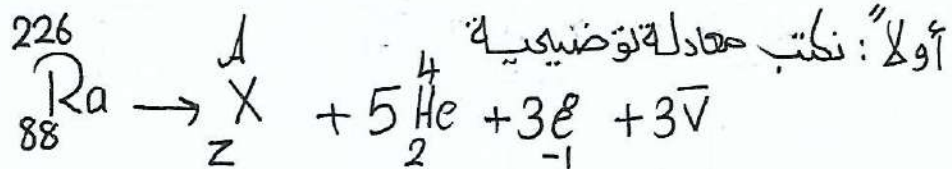 أولاً: نكتب معادلة توضيحية
²²⁶₈₈Ra → ᴬ_Z X + 5 ⁴₂He + 3 ₋₁e + 3 v̅